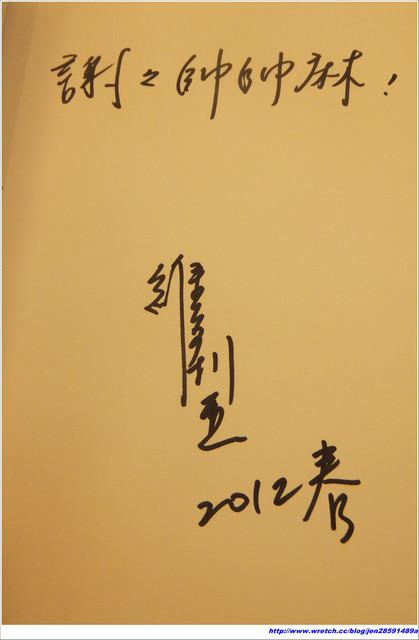 謝々帥帥麻!
2012春
http://www.wretch.cc/blog/jen28591489a